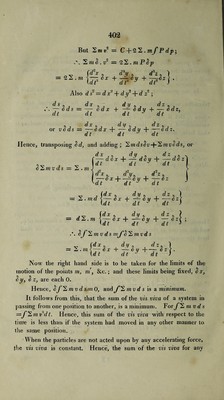 402
But Σmv² = C + 2Σ.mfPdp;
∴ Σmδ.v² = 2Σ.mPδp
= 2Σ.m {d²x/dt² δx + d²y/dt² δy + d²z/dt² δz}.
Also ds² = dx² + dy² + dz²;
∴ ds/dt δds = dx/dt δdx + dy/dt δdy + dz/dt δdz,
or vδds = dx/dt δdx + dy/dt δdy + dz/dt δdz.
Hence, transposing δd, and adding; Σmdsδv + Σmvδds, or
δΣmvds = Σ.m {dx/dt dδx + dy/dt dδy + dz/dt dδz + d²x/dt δx + d²y/dt δy + d²z/dt δz}
= Σ.md {dx/dt δx + dy/dt δy + dz/dt δz}
= dΣ.m {dx/dt δx + dy/dt δy + dz/dt δz};
∴ δ∫Σmvds = ∫δΣmvds
= Σ.m {dx/dt δx + dy/dt δy + dz/dt δz}.
Now the right hand side is to be taken for the limits of the
motion of the points m, m′, &c.; and these limits being fixed, δx,
δy, δz, are each 0.
Hence, δ∫Σmvds = 0, and ∫Σmvds is a minimum.
It follows from this, that the sum of the vis viva of a system in
passing from one position to another, is a minimum. For ∫Σmvds
= ∫Σmv²dt. Hence, this sum of the vis viva with respect to the
time is less than if the system had moved in any other manner to
the same position.
When the particles are not acted upon by any accelerating force,
the vis viva is constant. Hence, the sum of the vis viva for any